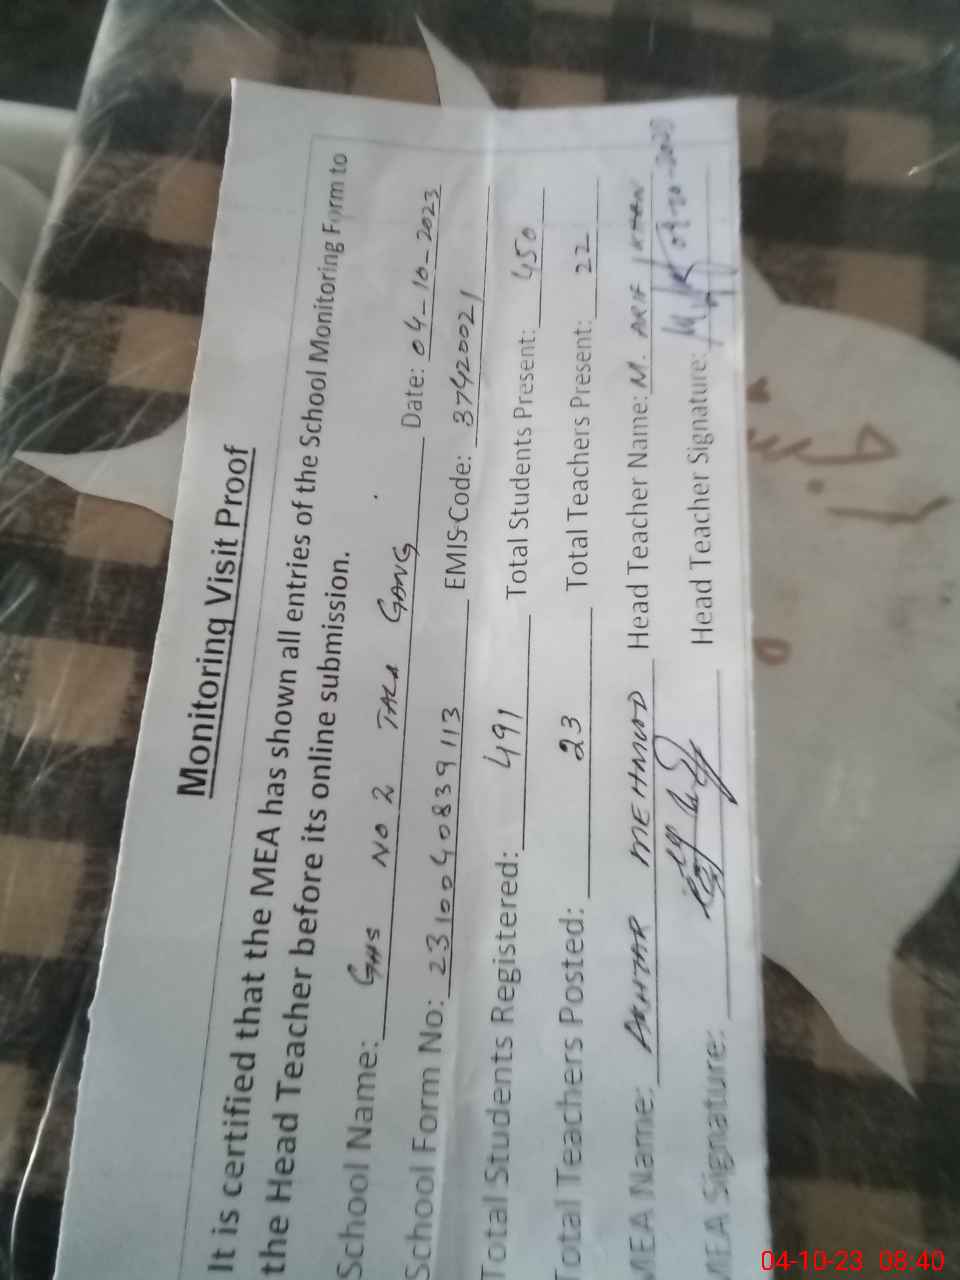 Monitoring Visit Proof
It is certified that the MEA has shown all entries of the School Monitoring Form to
the Head Teacher before its online submission.
School Name: GHS NO 2 TALA GANG Date: 04-10-2023
School Form No: 2310040839113 EMIS Code: 37420021
Total Students Registered: 491 Total Students Present: 450
Total Teachers Posted: 23 Total Teachers Present: 22
MEA Name: AKHTAR MEHMOOD Head Teacher Name: M. ARIF KHAN
MEA Signature: Head Teacher Signature:
04-10-23 08:40